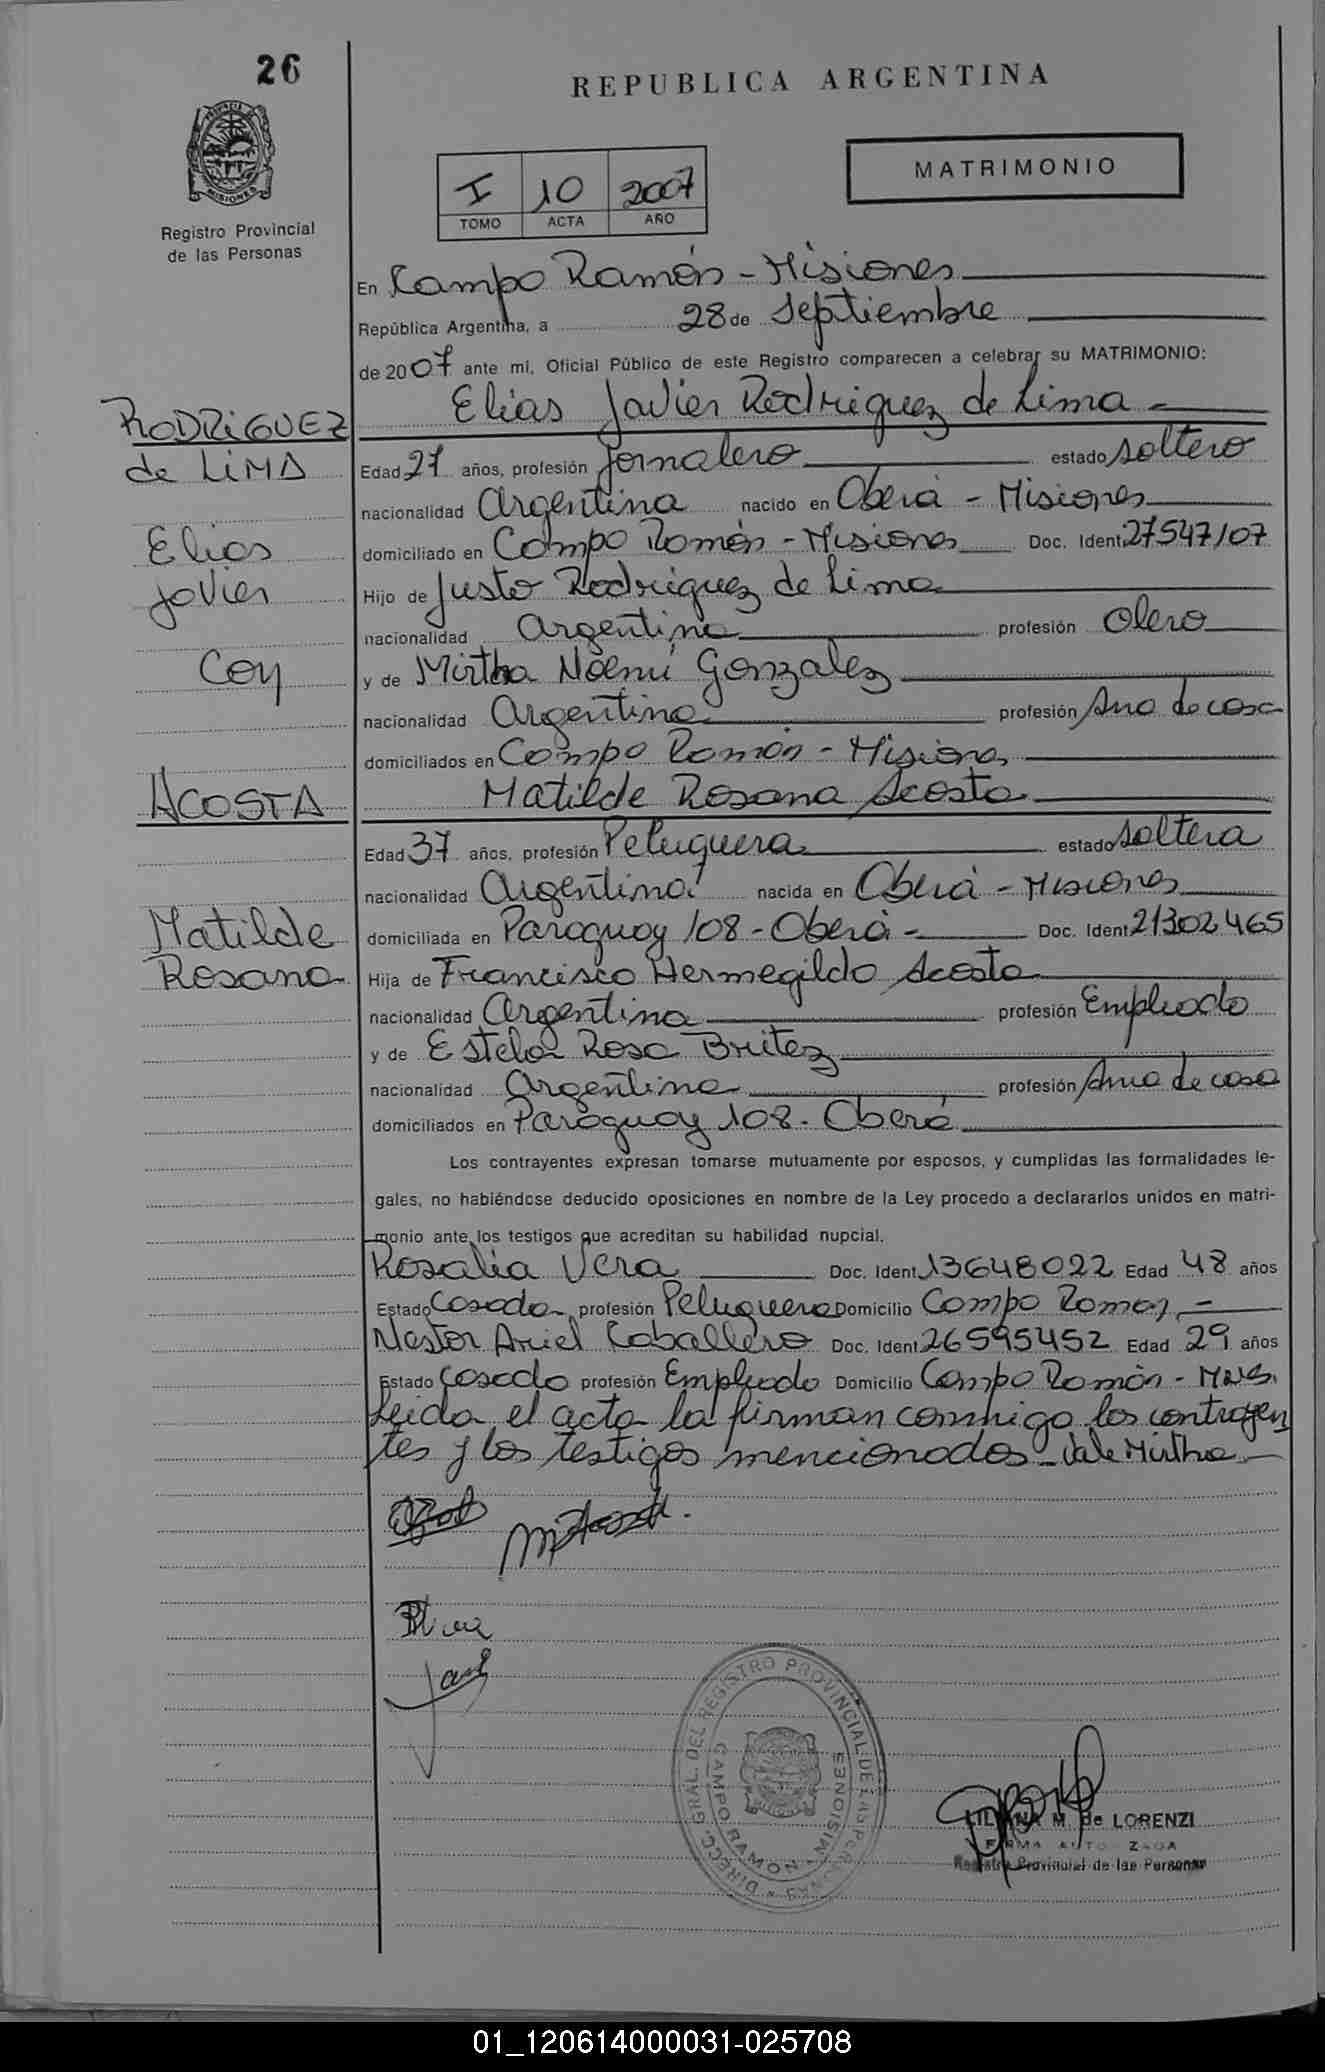 26
REPUBLICA ARGENTINA
PROVINCIA DE MISIONES
Registro Provincial
de las Personas
I 10 2007
TOMO ACTA AÑO
MATRIMONIO
En Campo Ramón - Misiones
República Argentina, a 28 de Septiembre
de 2007 ante mí, Oficial Público de este Registro comparecen a celebrar su MATRIMONIO:
RODRIGUEZ
de LIMA
Elias
Javier
Con
ACOSTA
Matilde
Rosana
Elias Javier Rodriguez de Lima -
Edad 27 años, profesión Jornalero estado soltero
nacionalidad Argentina nacido en Oberá - Misiones
domiciliado en Campo Ramón - Misiones Doc. Ident 27547107
Hijo de Justo Rodriguez de Lima
nacionalidad Argentina profesión Olero
y de Mirtha Noemí Gonzalez
nacionalidad Argentina profesión Ama de casa
domiciliados en Campo Ramón - Misiones
Matilde Rosana Acosta
Edad 37 años, profesión Peluquera estado soltera
nacionalidad Argentina nacida en Oberá - Misiones
domiciliada en Paraguay 108 - Oberá - Doc. Ident 21302465
Hija de Francisco Hermegildo Acosta
nacionalidad Argentina profesión Empleado
y de Estela Rosa Britez
nacionalidad Argentina profesión Ama de casa
domiciliados en Paraguay 108 - Oberá
Los contrayentes expresan tomarse mutuamente por esposos, y cumplidas las formalidades le-
gales, no habiéndose deducido oposiciones en nombre de la Ley procedo a declararlos unidos en matri-
monio ante los testigos que acreditan su habilidad nupcial.
Rosalia Vera Doc. Ident 13648022 Edad 48 años
Estado Casada profesión Peluquera Domicilio Campo Ramon -
Nestor Ariel Caballero Doc. Ident 26595452 Edad 29 años
Estado Casado profesión Empleado Domicilio Campo Ramón - Mnes.
Leida el acta la firman conmigo los contrayen
tes y los testigos mencionados - Vale Mirtha -
DIRECC. GRAL. DEL REGISTRO PROVINCIAL DE LAS PERSONAS
CAMPO RAMON MISIONES
LILIANA M. de LORENZI
FIRMA AUTORIZADA
Registro Provincial de las Personas
01_120614000031-025708